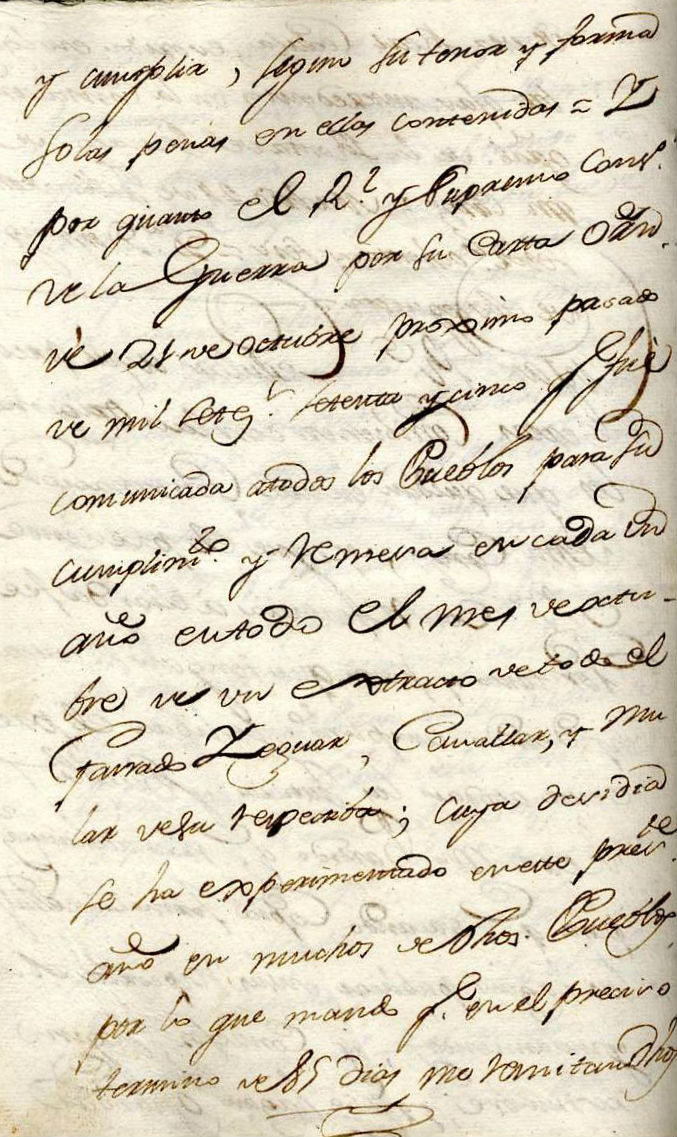 y cumplir, segun su tenor y forma
solas penas en ellas contenidas = Y
por quanto el R.l y Supremo Cons.o
de la Guerra por su Carta Orñ.
de 21 de octubre proximo pasado
de mil Seteç.s setenta y cinco q.e fué
comunicada atodos los Pueblos para su
cumplim.to y remesa en cada un
año en todo el mes de octu-
bre de un extracto de todo el
Ganado Yeguar, Cavallar, y Mu
lar de su respectiba; cuya desidia
se ha experimentado en este pres.te
año en muchos de dhos. Pueblos,
por lo que mando q.e en el preciso
termino de dias me remitan dhos